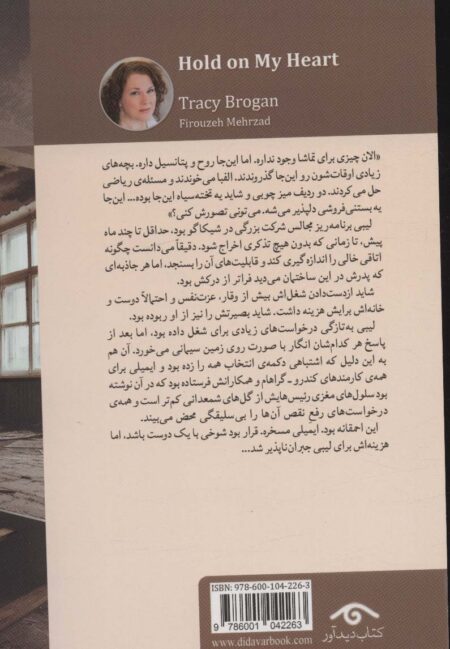 Hold on My Heart
Tracy Brogan
Firouzeh Mehrzad
«الان چیزی برای تماشا وجود نداره. اما این‌جا روح و پتانسیل داره. بچه‌های
زیادی اوقات‌شون رو این‌جا گذروندند. الفبا می‌خوندند و مسئله‌ی ریاضی
حل می‌کردند. دو ردیف میز چوبی و شاید یه تخته‌سیاه این‌جا بوده... این‌جا
یه بستنی‌فروشی دلپذیر می‌شه. می‌تونی تصورش کنی؟»
لیبی برنامه‌ریز مجالس شرکت بزرگی در شیکاگو بود، حداقل تا چند ماه
پیش، تا زمانی که بدون هیچ تذکری اخراج شود. دقیقاً می‌دانست چگونه
اتاقی خالی را اندازه‌گیری کند و قابلیت‌های آن را بسنجد. اما هر جاذبه‌ای
که پدرش در این ساختمان می‌دید فراتر از درکش بود.
شاید ازدست‌دادن شغل‌اش بیش از وقار، عزت‌نفس و احتمالاً دوست و
خانه‌اش برایش هزینه داشت. شاید بصیرتش را نیز از او ربوده بود.
لیبی به‌تازگی درخواست‌های زیادی برای شغل داده بود، اما بعد از
پاسخ هر کدام‌شان انگار با صورت روی زمین سیمانی می‌خورد. آن هم
به این دلیل که اشتباهی دکمه‌ی انتخاب همه را زده بود و ایمیلی برای
همه‌ی کارمندهای کندرو ـ گراهام و همکارانش فرستاده بود که در آن نوشته
بود سلول‌های مغزی رئیس‌هایش از گل‌های شمعدانی کم‌تر است و همه‌ی
درخواست‌های رفع نقص آن‌ها را بی‌سلیقگی محض می‌بیند.
این احمقانه بود. ایمیلی مسخره. قرار بود شوخی با یک دوست باشد، اما
هزینه‌اش برای لیبی جبران‌ناپذیر شد...
ISBN: 978-600-104-226-3
9 786001 042263
www.didavarbook.com
کتاب دیدآور